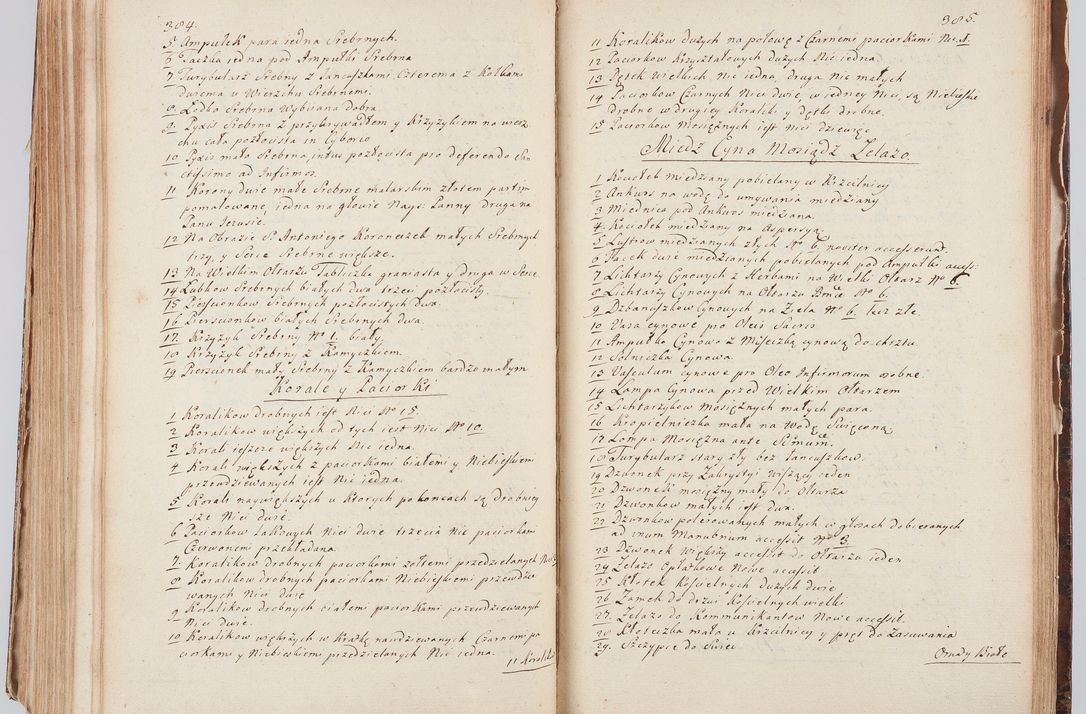 384.
5 Ampułek para iedna Srebrnych.
6 Taczka iedna pod Ampułki Srebrna
7 Turybularz Srebny z Łancuszkami Czterema z Kółkami
dwiema u Wierzchu Srebrnemi.
8 Łodka Srebrna Wybiiana dobra
9 Pyxis Srebrna z przykrywadłem y Krzyżykiem na wierz
chu cała pozłocista in Cyborio
10 Pyxis mała Srebrna, intus pozłocista pro deferendo San
ctissimo ad Infirmos.
11 Korony dwie małe Srebrne malarskim złotem partim
pomalowane, iedna na głowie Nays: Panny druga na
Panu Jezusie.
12 Na Obrazie S. Antoniego Koroneczek małych Srebrnych
trzy, y Serce Srebrne większe.
13 Na Wielkim Ołtarzu Tabliczka graniasta y Druga w Serce
14 Lubkow Srebrnych białych dwa trzeci pozłocisty.
15 Pierscionkow Srebrnych pozłocistych dwa.
16 Piersconkow białych Srebrnych dwa.
17. Krzyżyk Srebrny No 1. biały
18 Krzyżyk Srebrny z Kamyczkiem.
19 Pierscionek mały Srebrny z Kamyczkiem bardzo małym
Korale y Paciorki
1 Koralikow drobnych iest Nici No 15.
2 Koralikow większych od tych iest Nici No 10.
3 Korali ieszcze większych Nic iedna.
4 Korali większych z paciorkami białemi y Niebieskiemi
przewdziewanych iest Nic iedna.
5 Korali naywiększych u ktorych po koncach są drobniey
sze Nici dwie.
6 Paciorkow Lakowych Nici dwie trzecia Nic paciorkami
Czerwonemi przekładana.
7. Koralikow drobnych paciorkami żołtemi przedzielanych
8 Koralikow drobnych paciorkami Niebieskiemi przewdzie
wanych Nici dwie
9 Koralikow drobnych białemi paciorkami przewdziewanych
Nici dwie.
10 Koralikow większych w Kratkę nawdziewanych Czarnemi pa
ciorkami y Niebieskiemi przedzielanych Nic iedna.
11 Koralik
385.
11 Koralikow dużych na połowę z Czarnemi paciorkami Nic 1.
12 Paciorkow Krzyształowych dużych Nic iedna
13 Dętek Wielkich Nic iedna, druga Nic małych
14 Paciorkow Czarnych Nici dwie, w iedney Nici są Niebieskie
drobne w drugiey Koraliki y Dętki drobne.
15 Paciorkow Mosiężnych iest Nici dziewięc
Miedz Cyna Mosiądz Żelazo.
1 Kociołek miedziany pobielany w Krzcilnicy
2 Ankurs na wodę do umywania miedziany
3 Miednica pod Ankurs miedziana.
4. Kociołek miedziany na Aspersyą.
5 Lustrow miedzianych złych No 6. noviter accesserunt.
6 Tacek dwie miedzianych pobielanych pod Ampułki access:
7 Lichtarzy Cynowych z Herbami na Wielki Ołtarz No 6.
8 Lichtarzy Cynowych na Ołtarzu No 6.
9 Dzbanuszkow Cynowych na Ziela No 6. też złe.
10 Vasa cynowe pro Oleis Sacris
11 Ampułka Cynowa z Miseczką cynową do chrztu.
12 Solniczka Cynowa.
13 Vasculum cynowe pro Oleo Infirmorum osobne.
14 Lampa Cynowa przed Wielkim Ołtarzem
15 Lichtarzykow Mosiężnych małych para.
16 Kropielniczka mała na Wodę Swięconą
17 Lampa Mosiężna ante Sstmum.
18 Turybularz stary zły bez Łancuszkow.
19 Dzwonek przy Zakrystyi Wiszący ieden
20 Dzwonek mosiężny mały do Ołtarza
21 Dzwonkow małych iest dwa.
22 Dzwonkow polerowanych małych w głosach dobieranych
ad unum Manubrium accessit No 3.
23 Dzwonek większy accessit do Ołtarza ieden
24 Żelazo Opłatkowe Nowe accessit
25 Kłotek Koscielnych Dużych dwie
26 Zamek do drzwi Koscielnych wielki
27. Żelazo do Kommunikantow Nowe accessit.
28 Kłoteczka mała u Krzcilnicy y pręt do zasuwania
29. Szczypce do Swiec
Ornaty Białe